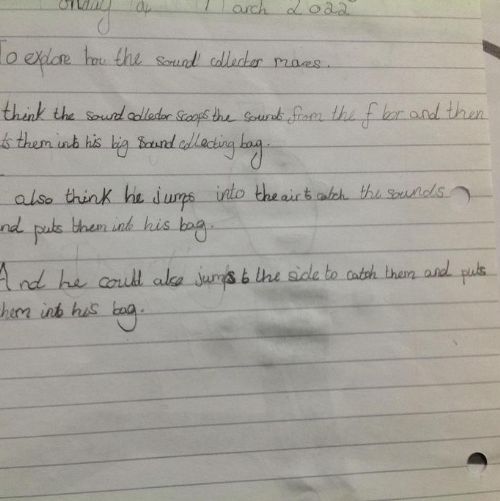 March 2022
To explore how the sound collector moves.
think the sound collector scoops the sounds from the f loor and then
ts them into his big sound collecting bag.
also think he jumps into the air to catch the sounds
nd puts them into his bag.
And he could also jumps to the side to catch them and puts
hem into his bag.